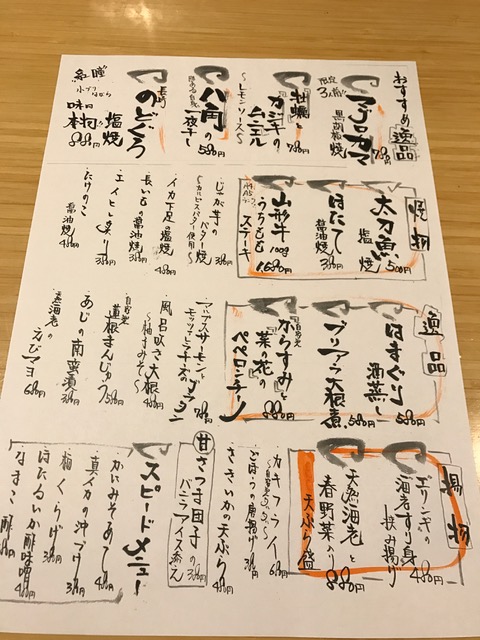 おすすめ逸品
限定3ヶ前
マグロカマ
黒胡椒焼 780円
牡蠣と
カジキの
ムニエル 780円
〜レモンソース〜
八角の
一夜干し 580円
長崎
のどぐろ
塩焼
小ブリながら
味は
本物 880円
焼物
太刀魚
塩焼 500円
ほたて
醤油焼 380円
山形牛
うちもも 100g
ステーキ 1,680円
じゃが芋の
バター焼 380円
〜カルピスバター使用〜
イカ下足の塩焼 480円
長いもの醤油焼 380円
エイヒレ炙り 380円
たけのこ
醤油焼 480円
逸品
はまぐり
酒蒸し 580円
ブリアラ大根煮 580円
からすみと
菜の花の
ペペロンチーノ 880円
アルプスサーモンと
モッツァレラチーズの
グラタン 780円
風呂吹き大根 480円
〜柚子みそ〜
蓮根まんじゅう 580円
あじの南蛮漬 380円
天然海老の
えびマヨ 680円
揚物
エリンギの
海老すり身
挟み揚げ 480円
天然海老と
春野菜入り 880円
天ぷら盛
カキフライ 680円
ごぼうの唐揚げ 380円
ささいかの天ぷら 480円
甘
さつま団子の 380円
バニラアイス添え
スピードメニュー
かにみそあて 480円
真イカの沖づけ 480円
梅くらげ 380円
ほたるいか酢味噌 480円
なまこ酢